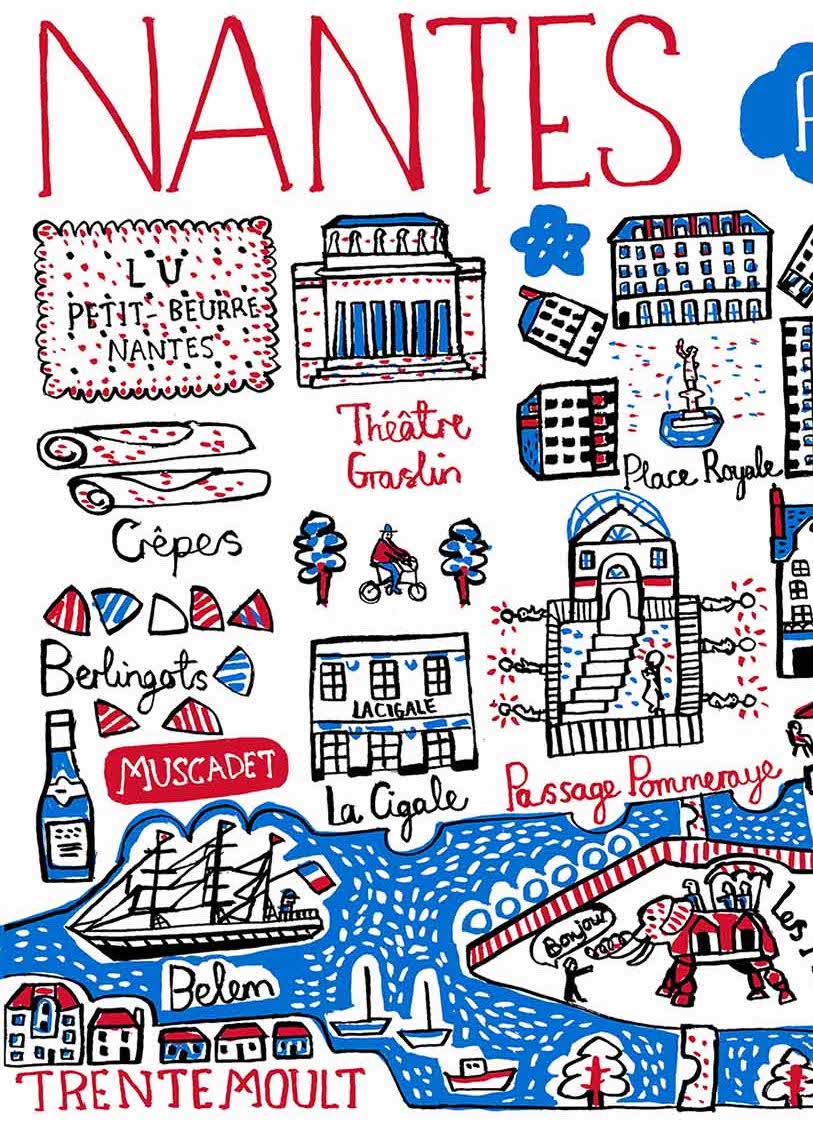 NANTES
LU
PETIT-BEURRE
NANTES
Théâtre
Graslin
Place Royale
Crêpes
Berlingots
LA CIGALE
MUSCADET
La Cigale
Passage Pommeraye
Bonjour
Les
Belem
TRENTEMOULT